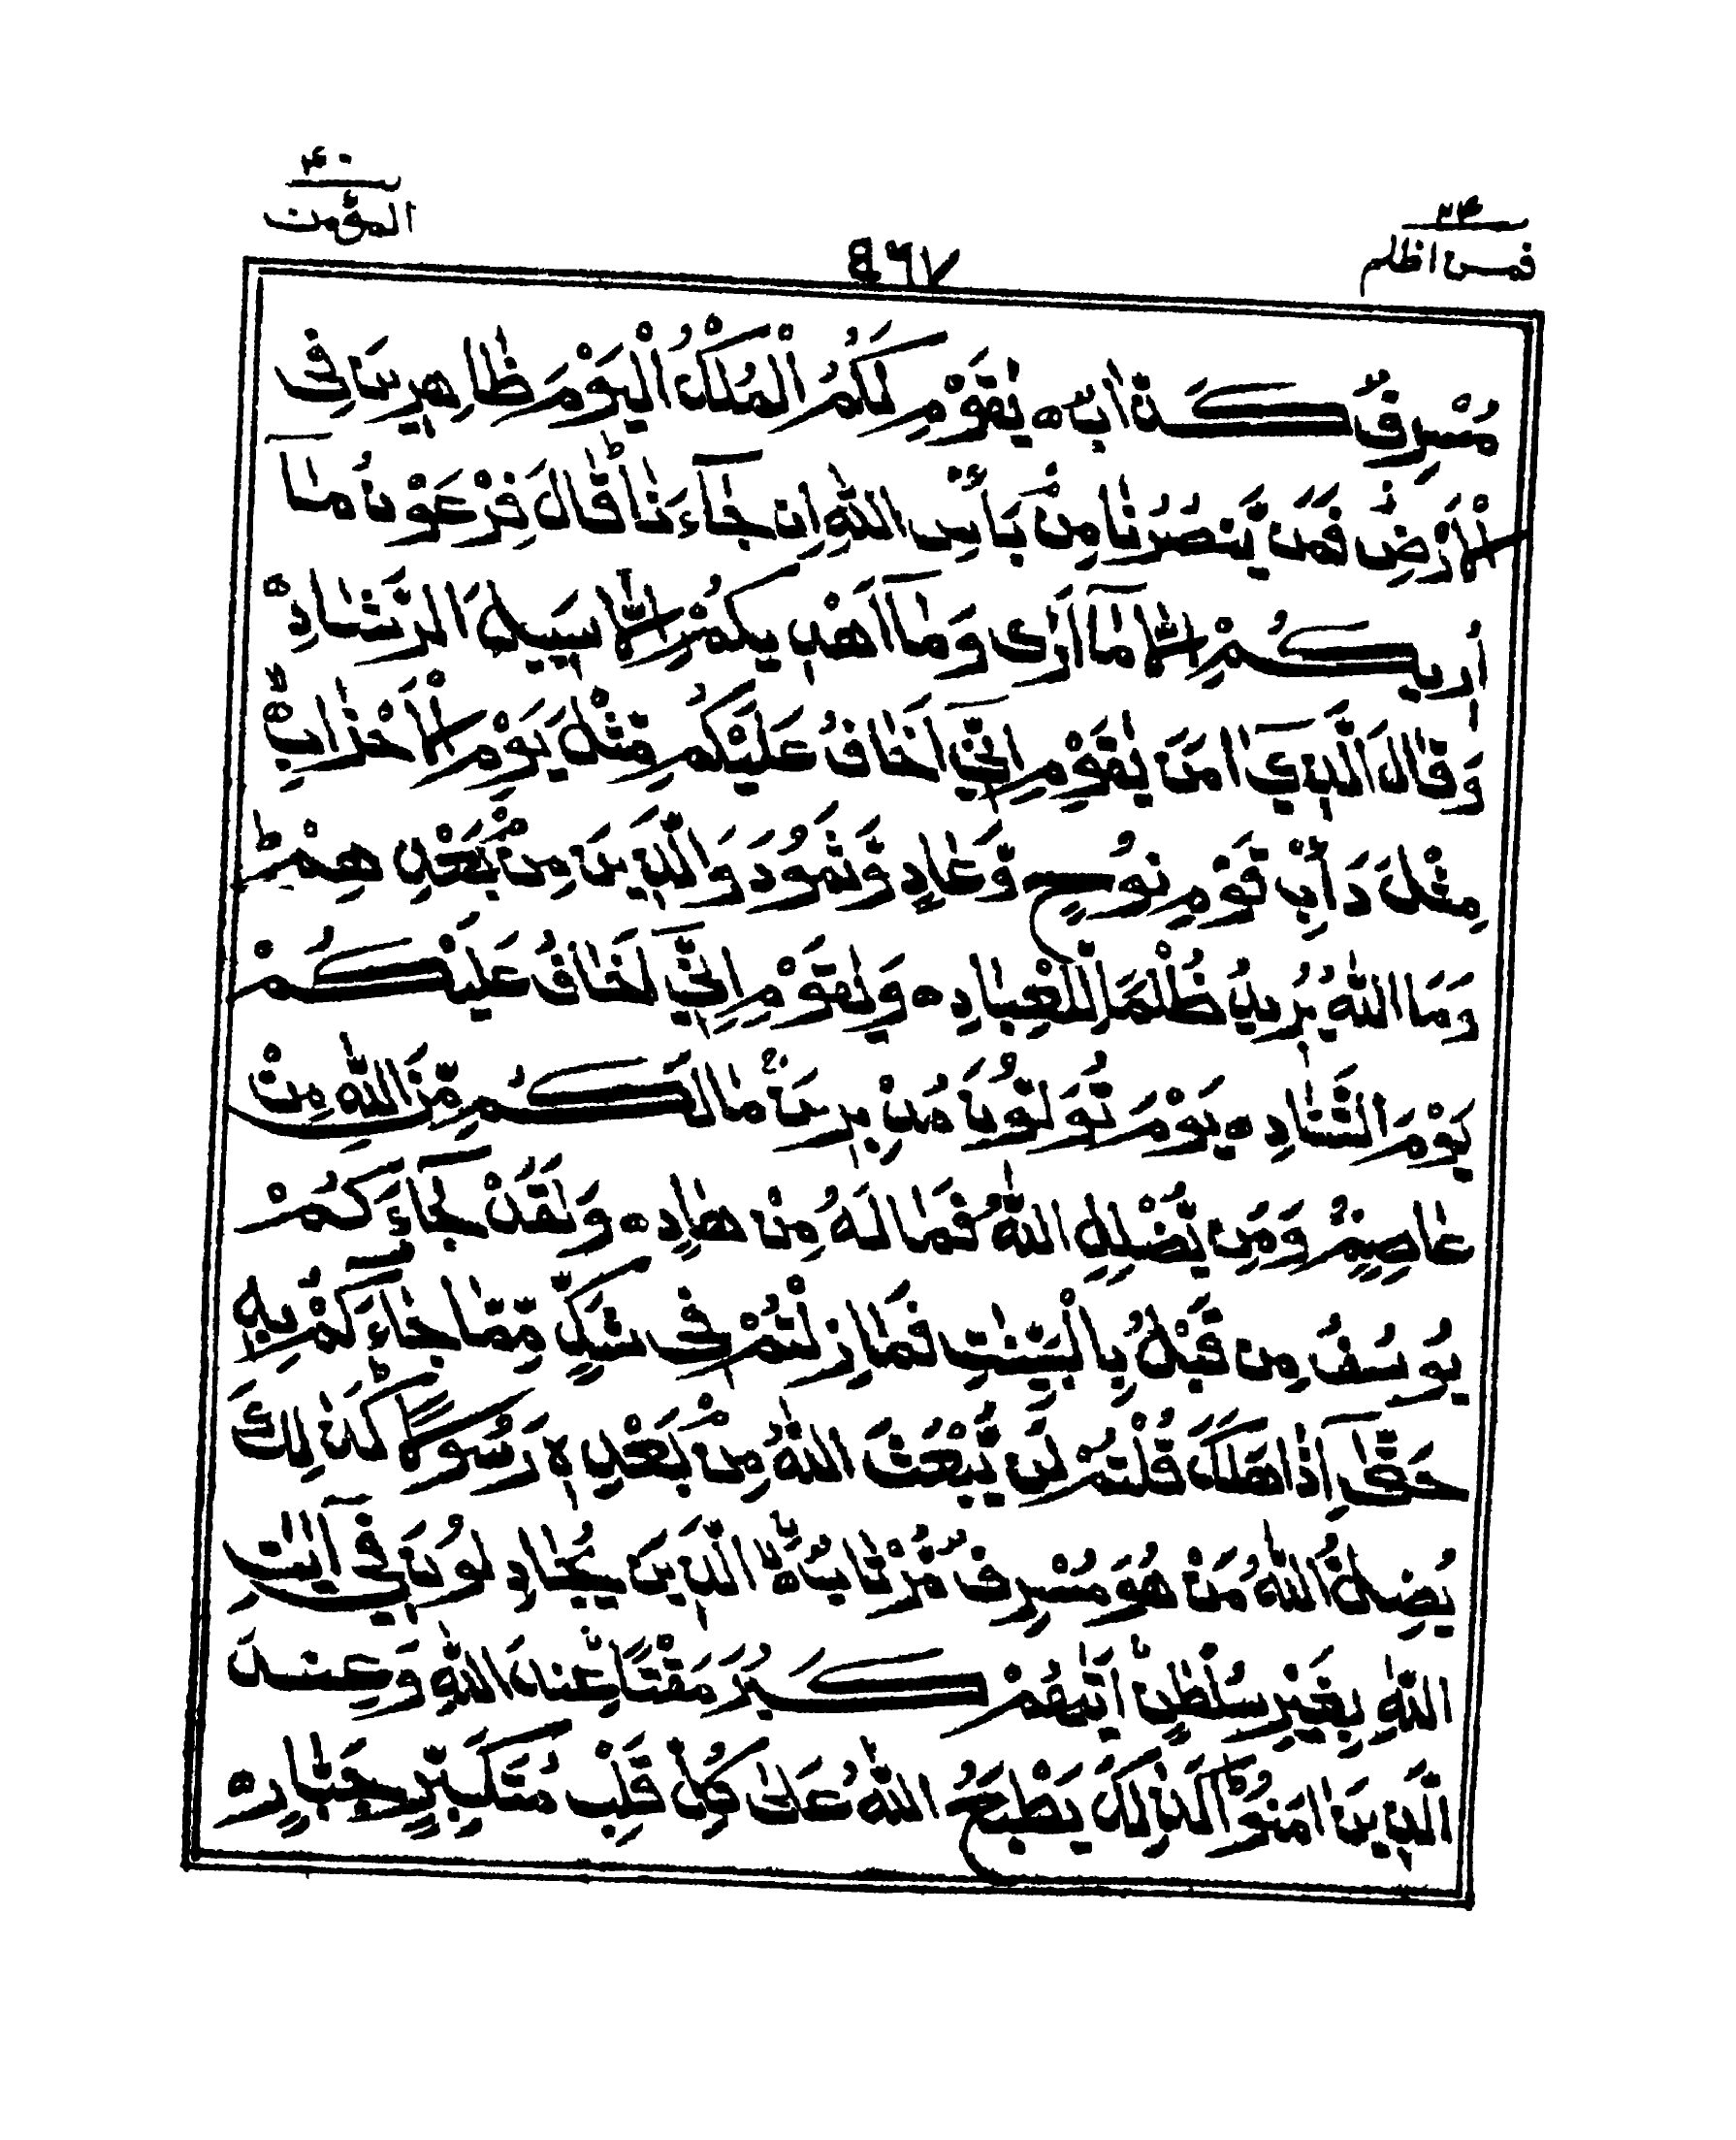 ۴۰
المؤمن
۲۴
فمن اظلم
۹۶۷
مُسْرِفٌ كَذَّابٌ ه يٰقَوْمِ لَكُمُ الْمُلْكُ الْيَوْمَ ظَاهِرِينَ فِي
الْاَرْضِ فَمَنْ يَّنْصُرُنَا مِنْۢ بَاْسِ اللّٰهِ اِنْ جَآءَنَا ط قَالَ فِرْعَوْنُ مَآ
اُرِيكُمْ اِلَّا مَآ اَرٰى وَمَآ اَهْدِيكُمْ اِلَّا سَبِيلَ الرَّشَادِ ه
وَقَالَ الَّذِيٓ اٰمَنَ يٰقَوْمِ اِنِّيٓ اَخَافُ عَلَيْكُمْ مِّثْلَ يَوْمِ الْاَحْزَابِ ه
مِثْلَ دَاْبِ قَوْمِ نُوحٍ وَّعَادٍ وَّثَمُودَ وَالَّذِينَ مِنْۢ بَعْدِهِمْ ط
وَمَا اللّٰهُ يُرِيدُ ظُلْمًا لِّلْعِبَادِ ه وَيٰقَوْمِ اِنِّيٓ اَخَافُ عَلَيْكُمْ
يَوْمَ التَّنَادِ ه يَوْمَ تُوَلُّونَ مُدْبِرِينَ ج مَا لَكُمْ مِّنَ اللّٰهِ مِنْ
عَاصِمٍ ج وَمَنْ يُّضْلِلِ اللّٰهُ فَمَا لَهُ مِنْ هَادٍ ه وَلَقَدْ جَآءَكُمْ
يُوسُفُ مِنْ قَبْلُ بِالْبَيِّنٰتِ فَمَا زِلْتُمْ فِي شَكٍّ مِّمَّا جَآءَكُمْ بِهِ ط
حَتّٰىٓ اِذَا هَلَكَ قُلْتُمْ لَنْ يَّبْعَثَ اللّٰهُ مِنْۢ بَعْدِهِ رَسُولًا ط كَذٰلِكَ
يُضِلُّ اللّٰهُ مَنْ هُوَ مُسْرِفٌ مُّرْتَابُ ه الَّذِينَ يُجَادِلُونَ فِيٓ اٰيٰتِ
اللّٰهِ بِغَيْرِ سُلْطٰنٍ اَتٰىهُمْ ط كَبُرَ مَقْتًا عِنْدَ اللّٰهِ وَعِنْدَ
الَّذِينَ اٰمَنُوا ط كَذٰلِكَ يَطْبَعُ اللّٰهُ عَلٰى كُلِّ قَلْبِ مُتَكَبِّرٍ جَبَّارٍ ه